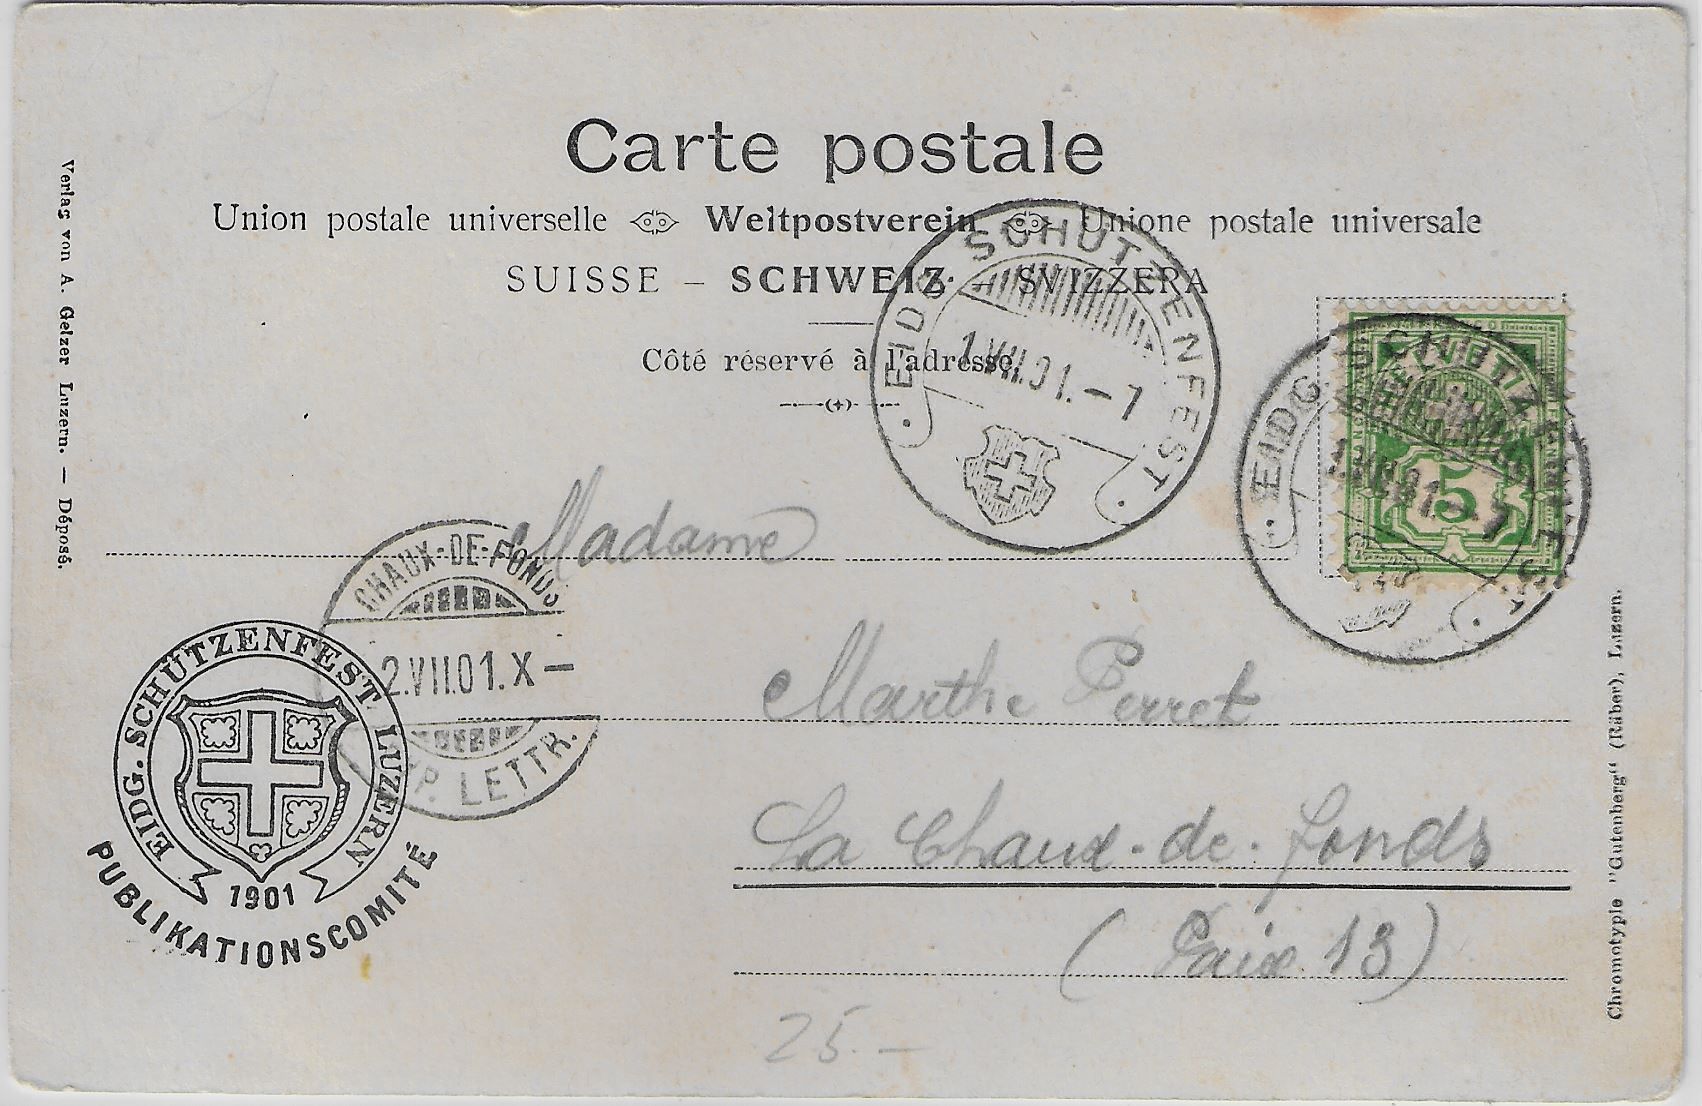 Carte postale
Union postale universelle Weltpostverein Unione postale universale
SUISSE – SCHWEIZ – SVIZZERA
Côté réservé à l'adresse.
Verlag von A. Gelzer Luzern. — Déposé.
EIDG. SCHÜTZENFEST
1.VII.01.–7
EIDG. SCHÜTZENFEST
1.VII.01.–7
5
Madame
CHAUX-DE-FONDS
2.VII.01.X–
EXP. LETTR.
Marthe Perret
La Chaux-de-fonds
(Paix 13)
EIDG. SCHÜTZENFEST LUZERN
1901
PUBLIKATIONSCOMITÉ
Chromotypie "Gutenberg" (Räber), Luzern.
25.–